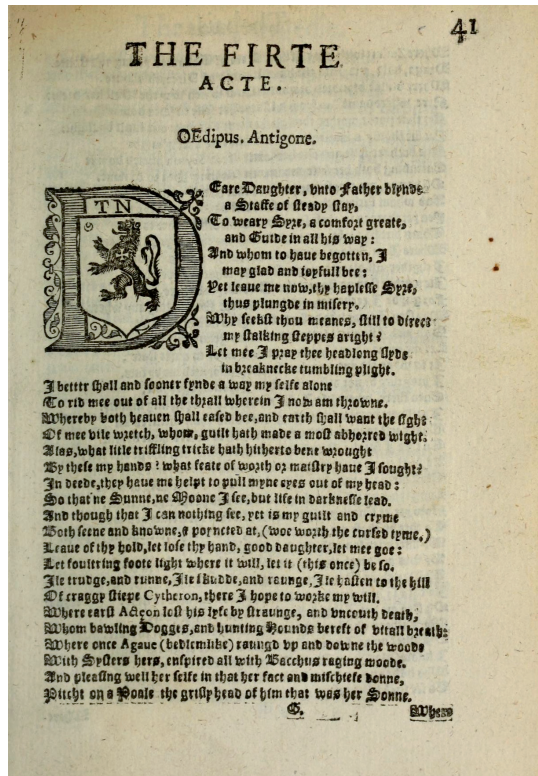 41
THE FIRTE
ACTE.
OEdipus. Antigone.
TN
DEare Daughter, vnto Father blynde
a Staffe of steady stay,
To weary Syre, a comfort greate,
and Guide in all his way:
And whom to haue begotten, I
may glad and ioyfull bee:
Yet leaue me now, thy haplesse Syre,
thus plungde in misery.
Why seekst thou meanes, still to direct
my stalking steppes aright?
Let mee I pray thee headlong slyde
in breaknecke tumbling plight.
I better shall and sooner fynde a way my selfe alone
To rid mee out of all the thrall wherein I now am throwne.
Whereby both heauen shall eased bee, and earth shall want the sight
Of mee vile wretch, whom, guilt hath made a most abhorred wight.
Alas, what litle triffling tricke hath hitherto bene wrought
By these my hands? what feate of worth or maistry haue I sought?
In deede, they haue me helpt to pull myne eyes out of my head:
So that ne Sunne, ne Moone I see, but life in darknesse lead.
And though that I can nothing see, yet is my guilt and cryme
Both seene and knowne, & poyncted at, (woe worth the cursed tyme.)
Leaue of thy hold, let lose thy hand, good daughter, let mee goe:
Let foultring foote light where it will, let it (this once) be so.
Ile trudge, and runne, Ile skudde, and raunge, Ile hasten to the hill
Of craggy stiepe Cytheron, there I hope to worke my will.
Where earst Acteon lost his lyfe by straunge, and vncouth death,
Whom bawling Dogges, and hunting Hounds bereft of vitall breath:
Where once Agaue (bedlemlike) raungd vp and downe the woods
With Systers hers, enspired all with Bacchus raging moode.
And pleasing well her selfe in that her fact and mischiefe donne,
Pitcht on a Poale the grisly head of him that was her Sonne.
G. Where